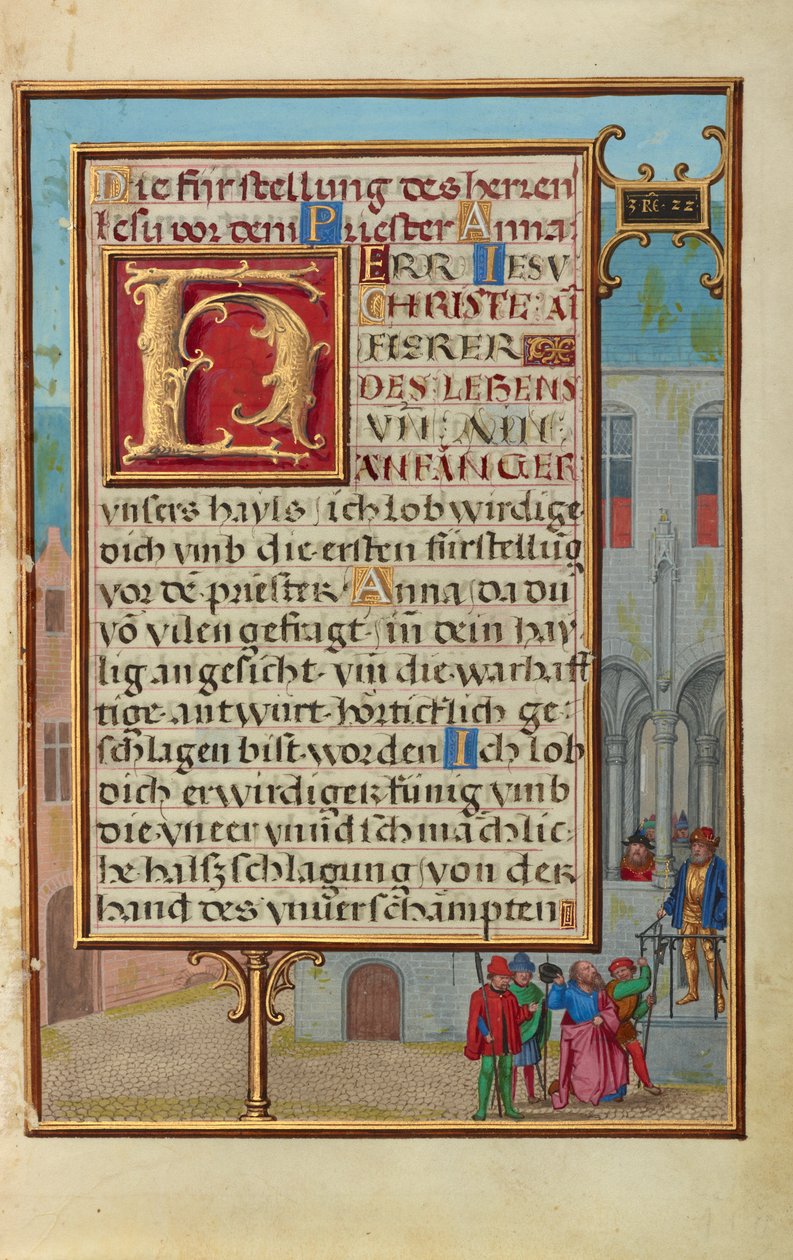 Die fürstellung des herren
Iesu vor dem Priester Anna:
3 · RE̅ · 22
HERR IESV
CHRISTE: AI
FIORER
DES LEBENS
VN̅: AIN:
ANFÄNGER
vnsers hayls / ich lob wirdige
dich vmb die ersten fürstellu̅g
vor de̅ priester Anna / da du
vo̅ vilen gefragt · in̅ dein hay⸗
lig angesicht · vnn̅ die warhaff
tige antwurt hörticklich ge⸗
schlagen bist worden Ich lob
dich erwirdiger künig vmb
die vneer vnnd schmachlic⸗
he halszschlagung / von der
hand des vnuerschampten